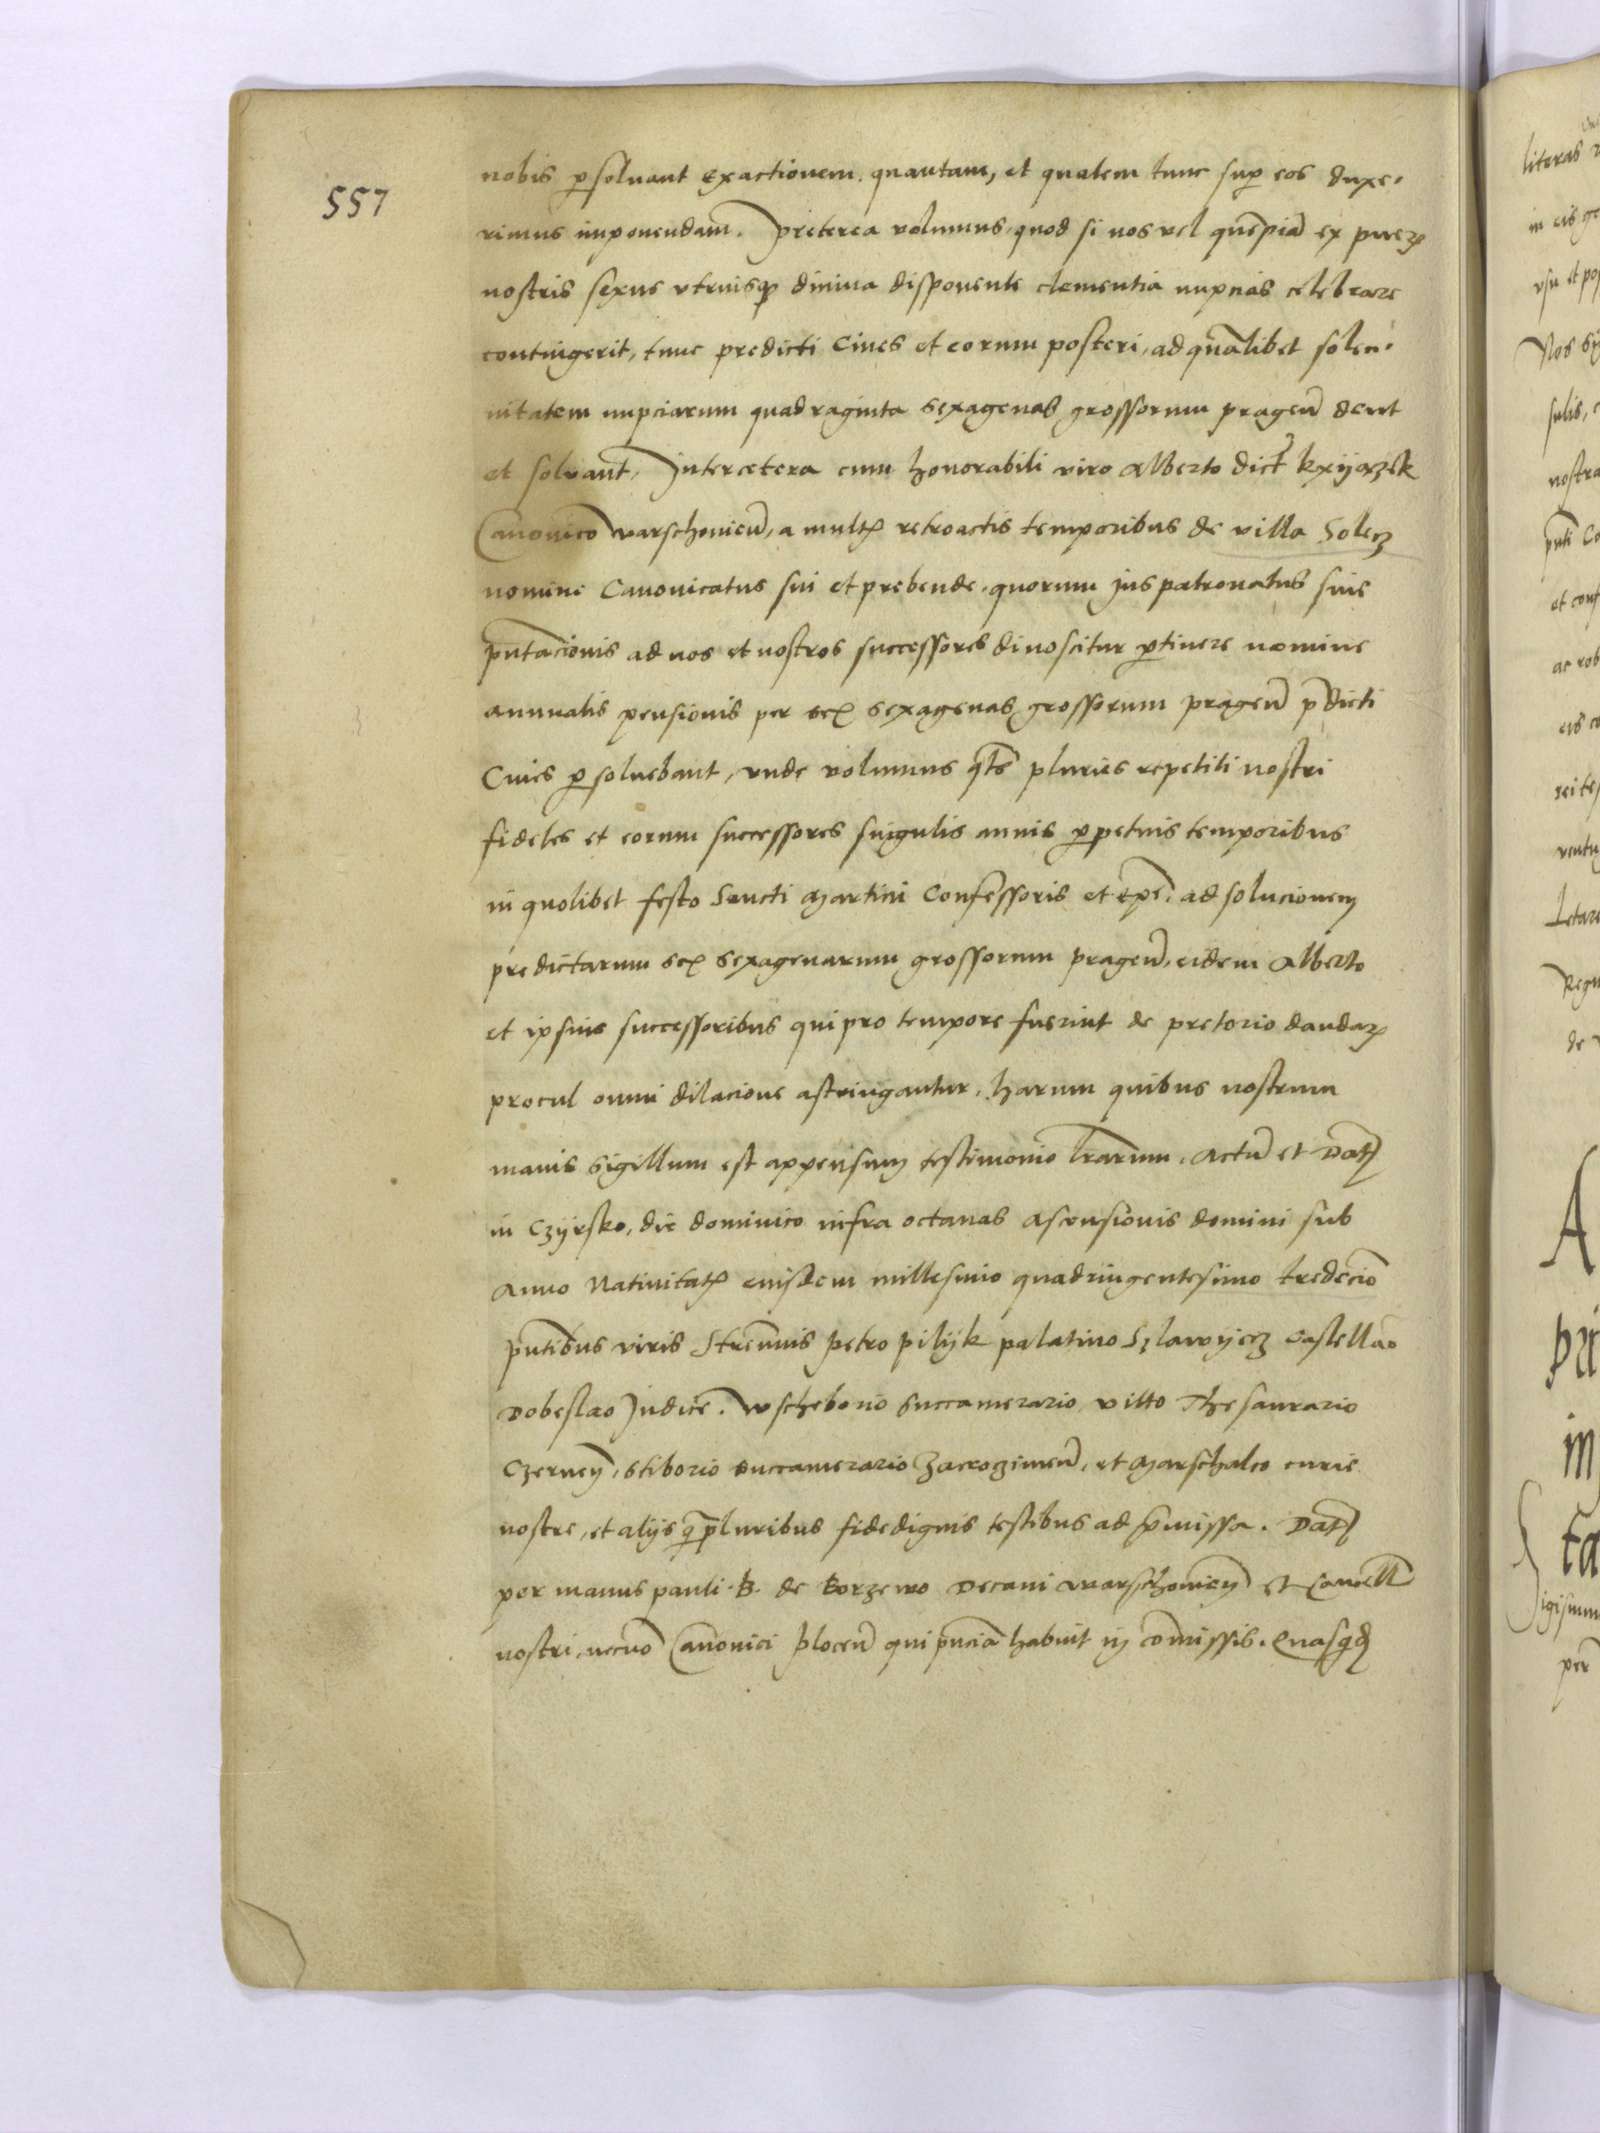 557
nobis ꝑsoluant exactionem, quantam, et qualem tunc suꝑ eos duxe⸗
rimus imponendam̄. Preterea volumus, quod si nos vel quēpiā ex pueꝝ
nostris sexus vtriusq̣ diuina disponente clementia nupcias celebrare
contingerit, tunc predicti Ciues et eorum posteri, ad quālibet solen⸗
nitatem nupciarum quadraginta sexagenas grossorum pragen̄ dent
et soluant̄. Intercetera cum honorabili viro Alberto dict̄ kxyązek
Canonico varschouien̄, a multꝭ retroactis temporibus de villa Solecz
nomine Canonicatus sui et prebende, quorum jus patronatus siue
p̄ntācionis ad nos et nostros successores dinoscitur ꝑtinere nomine
annualis pensionis per sex sexagenas grossorum pragen̄ p̄dicti
Ciues ꝑsoluebant, vnde volumus q̄ts̄ pluries repetiti nostri
fideles et eorum successores singulis annis ꝑpetuis temporibus
in quolibet festo Sancti Martini Confessoris et ep̄i, ad solucionem
predictarum sex sexagenarum grossorum pragen̄, eidem Alberto
et ipsius successoribus qui pro tempore fuerint de pretorio dandaꝝ
procul omni dilacione astringantur. harum quibus nostrum
maius sigillum est appensum testimonio l̄rarum. Actū et Dat̄
in Czyrsko, die dominico infra octauas ascensionis domini sub
Anno Natiuitatꝭ eiusdem millesimo quadringentesimo tredecīo
p̄ntibus viris Strennuis petro pilyk palatino Szlawyecz castellāo
Dobeslao Judice. wschebouio succamerario vitto Thesaurario
Czernen̄, stiborio succamerario Zacrozimen̄, et Marschalco curie
nostre, et alijs q̄ꝑluribus fidedignis testibus ad p̄missa. Dat̄
per manus pauli B. de Borzewo Decani warschouien̄ et Cancell̄
nostri, necnō Canonici plocen̄ qui p̄ncia habuit in com̄issis.